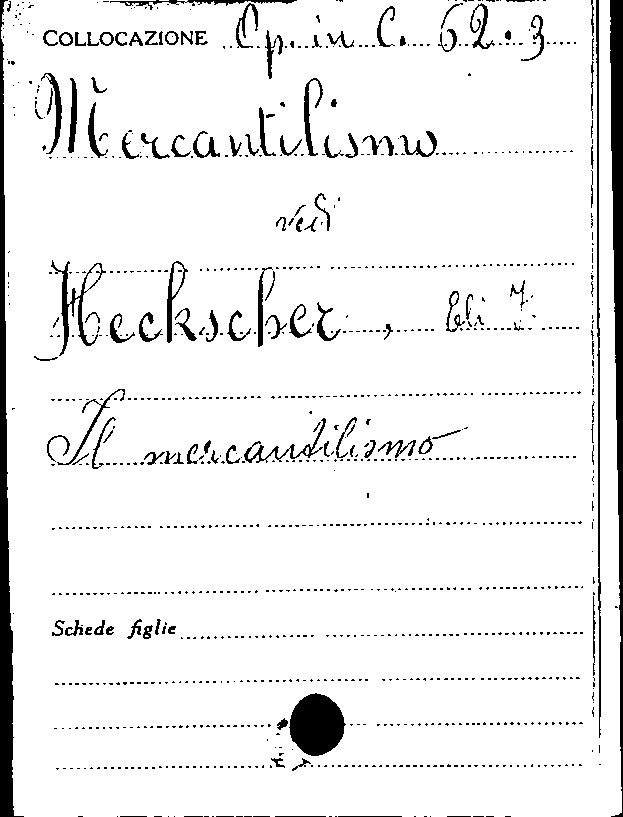 COLLOCAZIONE Op. in C. 62.3
Mercantilismo
vedi
Heckscher, Eli F.
Il mercantilismo
Schede figlie